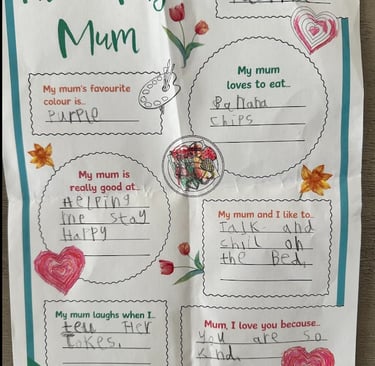 Mum
My mum's favourite
colour is..
Purple
My mum
loves to eat...
Banana
chips
My mum is
really good at..
Helping
me stay
Happy
My mum and I like to..
Talk and
chill on
the Bed.
My mum laughs when I..
tell Her
Jokes.
Mum, I love you because..
you are so
kind.